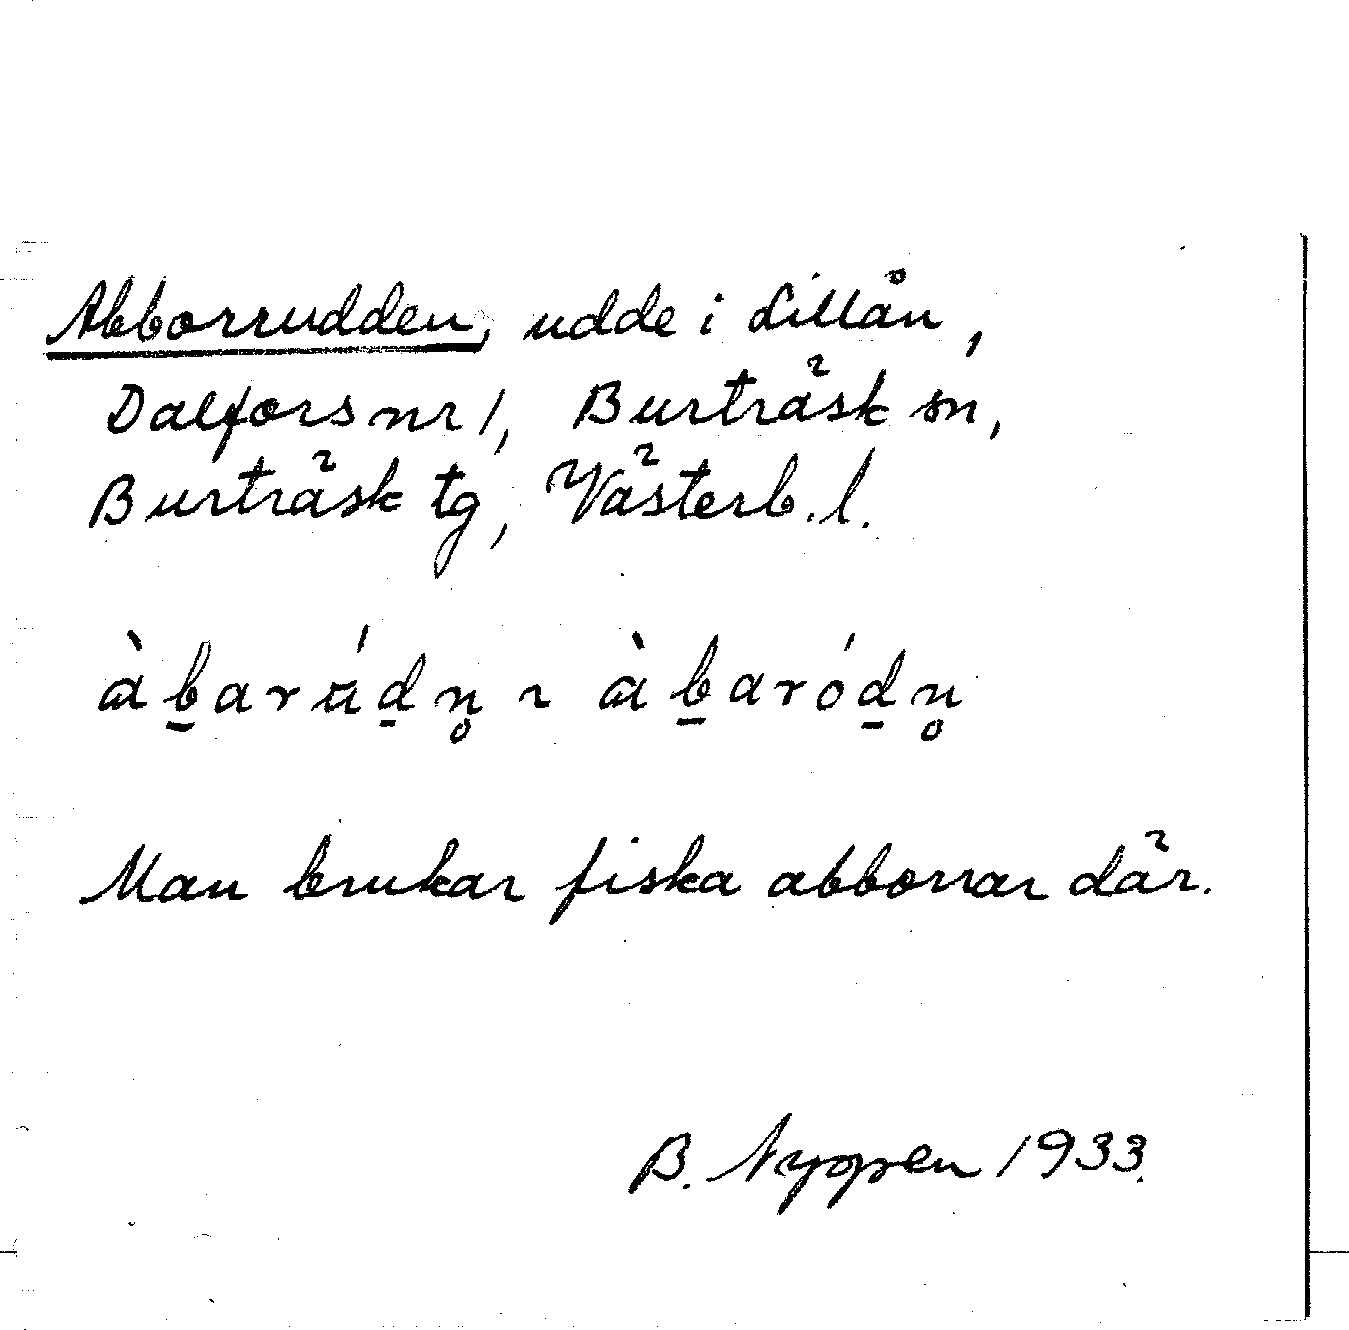 Abborrudden, udde i Lillån,
Dalfors nr 1, Burträsk sn,
Burträsk tg, Västerb. l.
àḇarúḏn̥ ~ àḇaróḏn̥
Man brukar fiska abborrar där.
B. Nygren 1933.